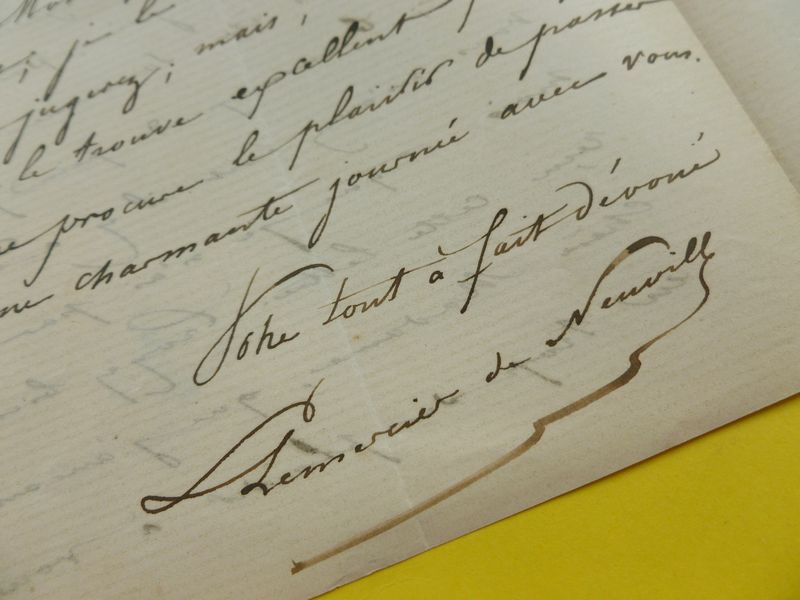 je le
jugerez; mais,
le trouve excellent
procure le plaisir de passer
charmante journée avec vous.
Votre tout à fait dévoué
Lemercier de Neuville